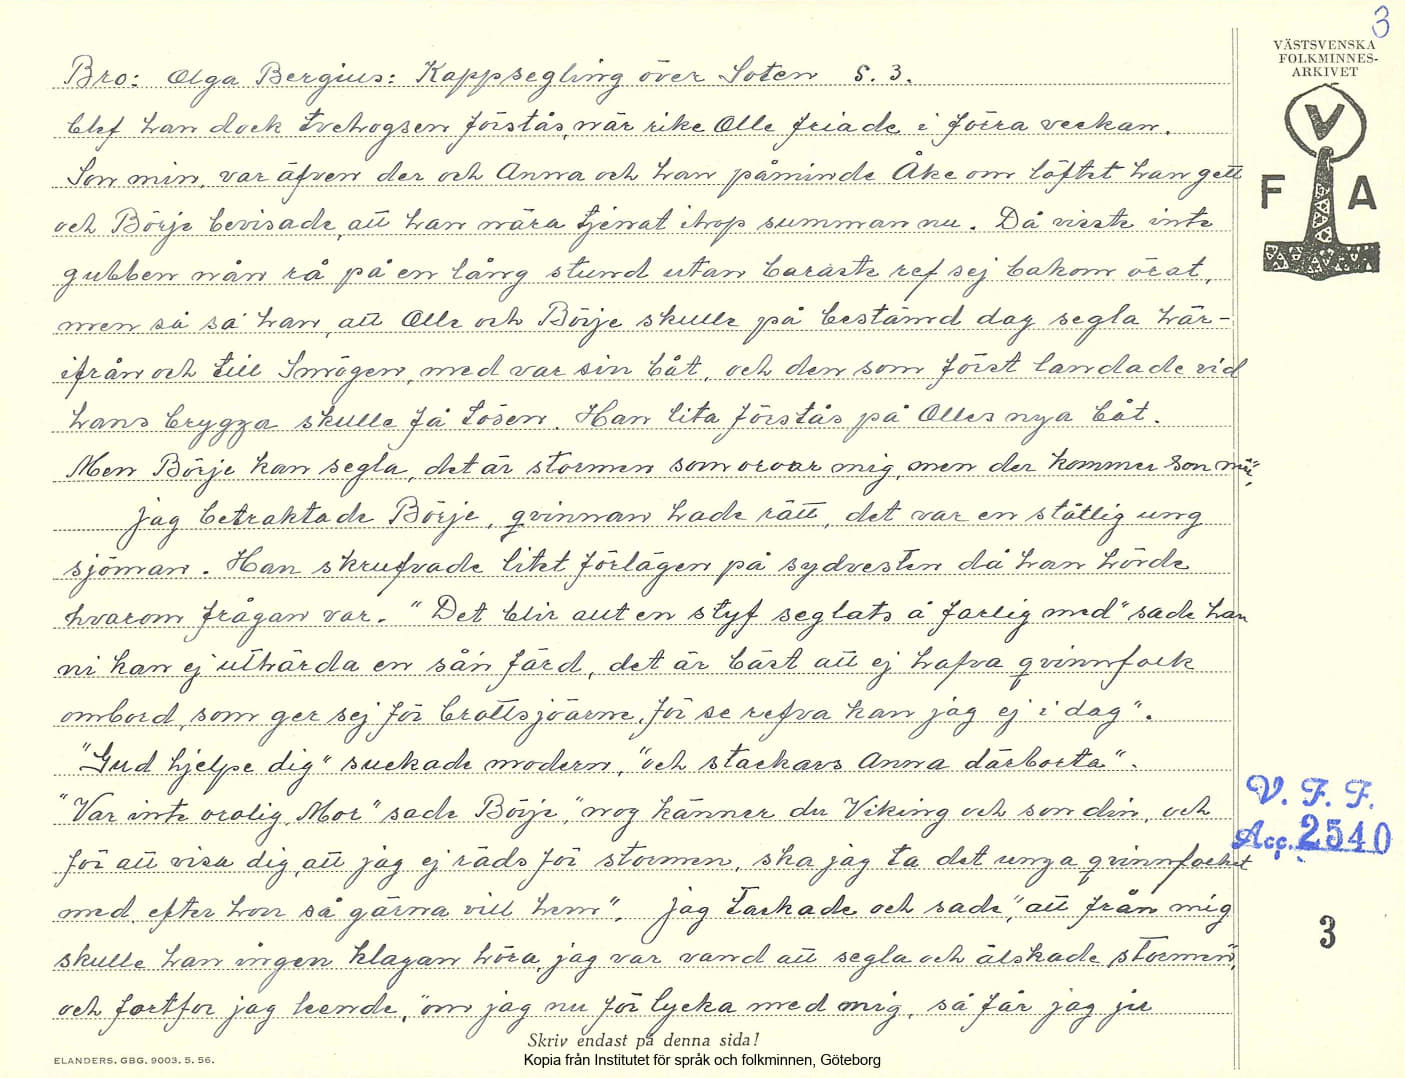 3
VÄSTSVENSKA
FOLKMINNES-
ARKIVET
V
F A
Bro: Olga Bergius: Kappsegling över Soten S. 3.
blef han dock tvehogsen förstås, när rike Olle friade i förra veckan.
Son min, var äfven der och Anna och han påminde Åke om löftet han gett
och Börje bevisade, att han nära tjenat ihop summan nu. Då visste inte
gubben nån rå på en lång stund utan baraste ref sej bakom örat,
men så sa' han, att Olle och Börje skulle på bestämd dag segla här-
ifrån och till Smögen, med var sin båt, och den som först landade vid
hans brygga skulle få tösen. Han lita förstås på Olles nya båt.
Men Börje kan segla, det är stormen som oroar mig, men der kommer son min,
jag betraktade Börje, qvinnan hade rätt, det var en ståtlig ung
sjöman. Han skrufvade litet förlägen på sydvesten då han hörde
hvarom frågan var. "Det blir allt en styf seglats å farlig med" sade han
ni kan ej uthärda en så'n färd, det är bäst att ej hafva qvinnfolk
ombord, som ger sej för brottsjöarne, för se refva kan jag ej i dag".
"Gud hjelpe dig" suckade modern, "och stackars Anna därborta".
"Var inte orolig, Mor" sade Börje, "nog känner du Viking och son din, och
för att visa dig, att jag ej räds för stormen, ska jag ta det unga qvinnfolket
med, efter hon så gärna vill hem". jag tackade och sade", att från mig
skulle han ingen klagan höra, jag var vand att segla och älskade stormen",
och fortfor jag leende, "om jag nu för lycka med mig, så får jag ju
V. F. F.
Acc. 2540
3
Skriv endast på denna sida!
ELANDERS. GBG. 9003. 5. 56.
Kopia från Institutet för språk och folkminnen, Göteborg